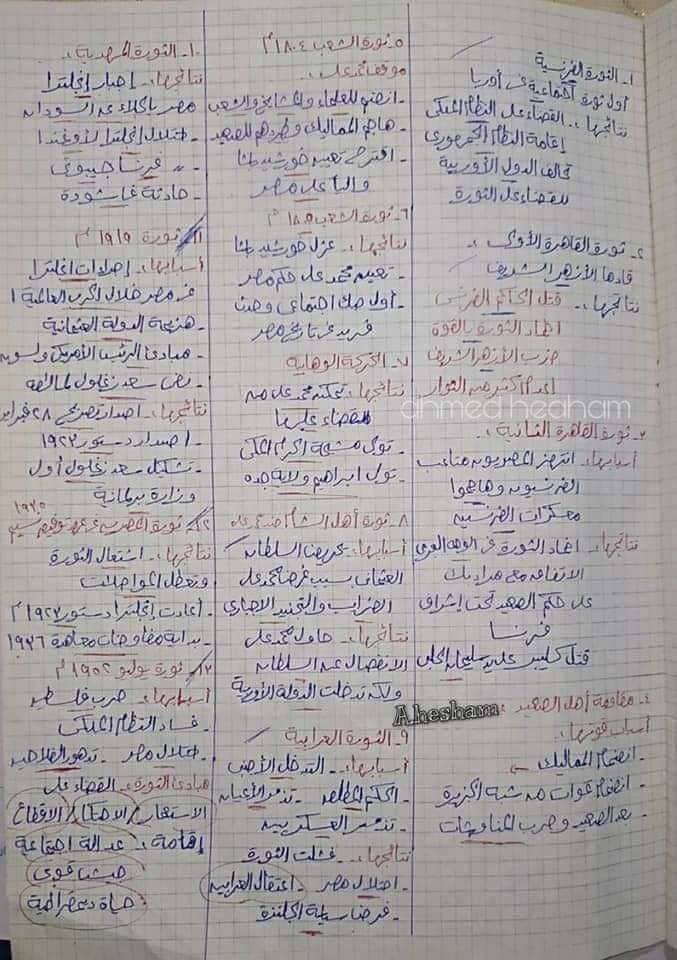 ١- الثورة الفرنسية
أول ثورة اجتماعية فى أوربا
نتائجها: القضاء على النظام الملكى
إقامة النظام الجمهورى
تحالف الدول الأوربية
للقضاء على الثورة
٢- ثورة القاهرة الأولى :
قادها الأزهر الشريف
نتائجها: - قتل الحاكم الفرنسى
اخماد الثورة بالقوة
ضرب الأزهر الشريف
اعدام أكثر من الثوار
٣- ثورة القاهرة الثانية :
أسبابها: انتهز المصريون متاعب
الفرنسيون وهاجموا
معسكرات الفرنسيين
نتائجها: اخماد الثورة فى الوجه البحرى
الاتفاق مع مراد بك
على حكم الصعيد تحت إشراف
فرنسا
قتل كليبر على يد سليمان الحلبى
٤- مقاومة أهل الصعيد :
أسباب قوتها:
- انضمام المماليك
- انضمام قوات من شبه الجزيرة
- بعد الصعيد وحرب المناوشات
٥- ثورة الشعب ١٨٠٤م
موقف محمد على :
- انضم للعلماء والمشايخ والشعب
- هاجم المماليك وطردهم للصعيد
- اقترح تعيين خورشيد باشا
واليا على مصر
٦- ثورة الشعب ١٨٠٥
نتائجها: عزل خورشيد باشا
- تعيين محمد على حكم مصر
- أول صك اجتماعى وحدث
فريد فى تاريخ مصر
٧- الحركة الوهابية
نتائجها: تمكن محمد على من
القضاء عليها
- تولى مشيخة الحرم المكى
- تولى ابراهيم ولاية جده
٨- ثورة أهل الشام ضد محمد على
أسبابها: تحريض السلطان
العثمانى بسبب فرض محمد على
الضرايب والتجنيد الاجبارى
نتائجها: حاول محمد على
الانفصال عن السلطان
ولكن تدخلت الدولة الأوربية
٩- الثورة العرابية
أسبابها: - التدخل الأجنبى
- الحكم المطلق - تذمر الأعيان
- تذمر العسكريين
نتائجها: - فشلت الثورة
- احتلال مصر - اعتقال العرابيين
- فرض سيطرة انجلترا
١٠- الثورة المهدية :
نتائجها: إجبار إنجلترا
مصر بالجلاء عن السودان
- احتلال إنجلترا لأوغندا
- " فرنسا جيبوتى
- حادثة فاشودة
١١- ثورة ١٩١٩م
أسبابها: إجراءات إنجلترا
فى مصر خلال الحرب العالمية ١
- هزيمة الدولة العثمانية
- مبادئ الرئيس الأمريكى ولسون
- نفى سعد زغلول لمالطة
نتائجها: اصدار تصريح ٢٨ فبراير
- اصدار دستور ١٩٢٣
- تشكيل سعد زغلول أول
وزارة برلمانية
١٢- ثورة المصريين توفيق نسيم ١٩٣٥
نتائجها: - اشتعال الثورة
وتعطل المواصلات
- أعادت إنجلترا دستور ١٩٢٣م
- بداية مفاوضات معاهدة ١٩٣٦
١٣- ثورة يوليو ١٩٥٢م
أسبابها: - حرب فلسطين
- فساد النظام الملكى
- احتلال مصر - تدهور الفلاحين
مبادئ الثورة: القضاء على
الاستعمار / الاحتكار / الاقطاع
إقامة: عدالة اجتماعية
جيشا قوى
حياة ديمقراطية
ahmed hesham
A.hesham